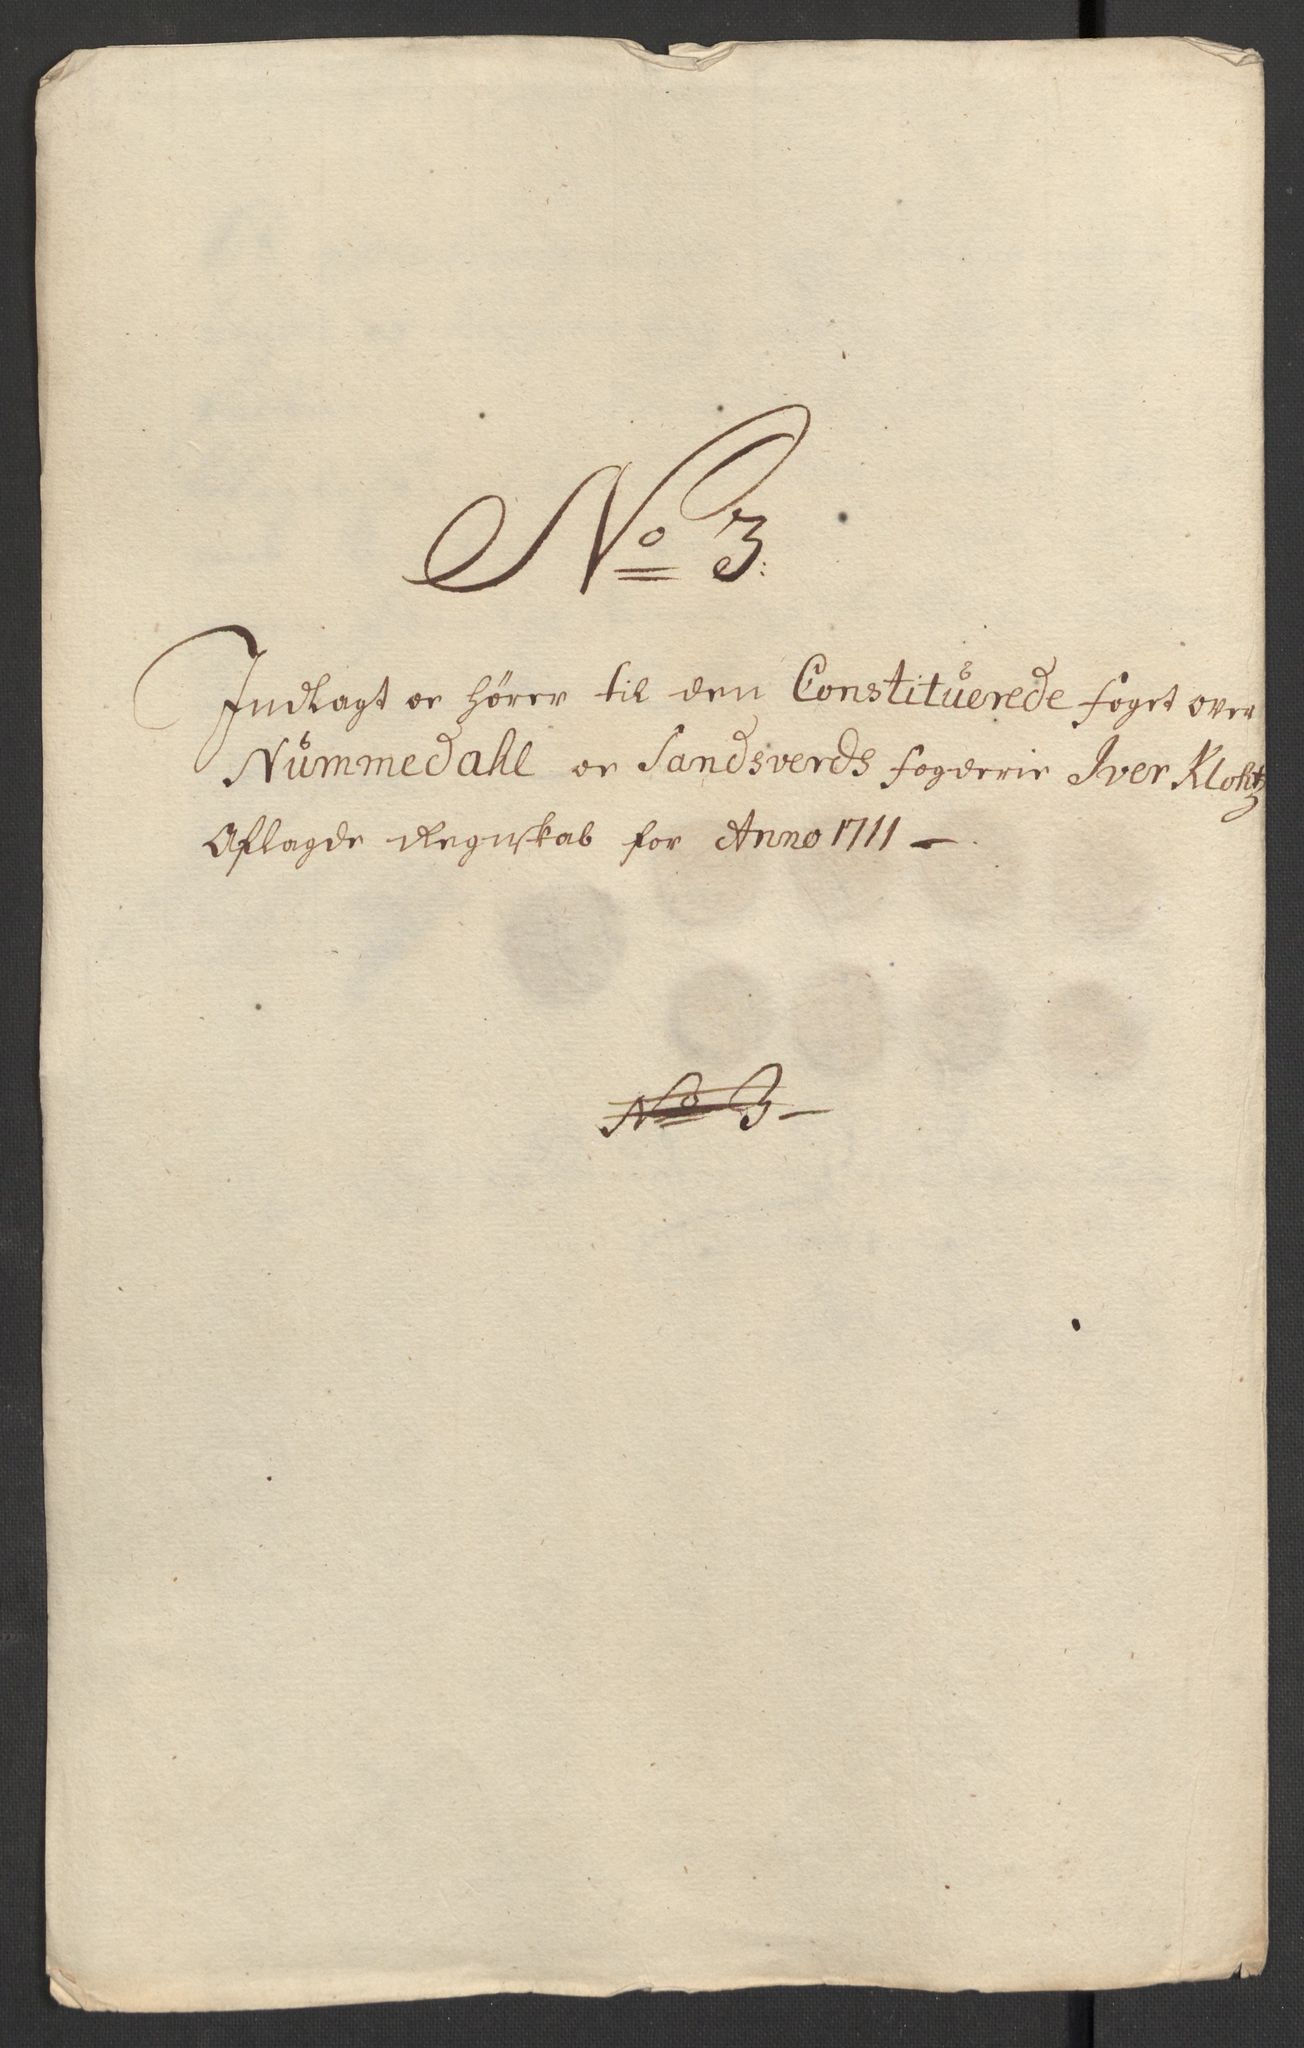 No 3:
Indlagt oc hörer til den Constituerede foget over
Nummedahl oc Sandsverds fogderie Iver Klohtz
Aflagde Regnskab for Anno 1711 –
No 3 –